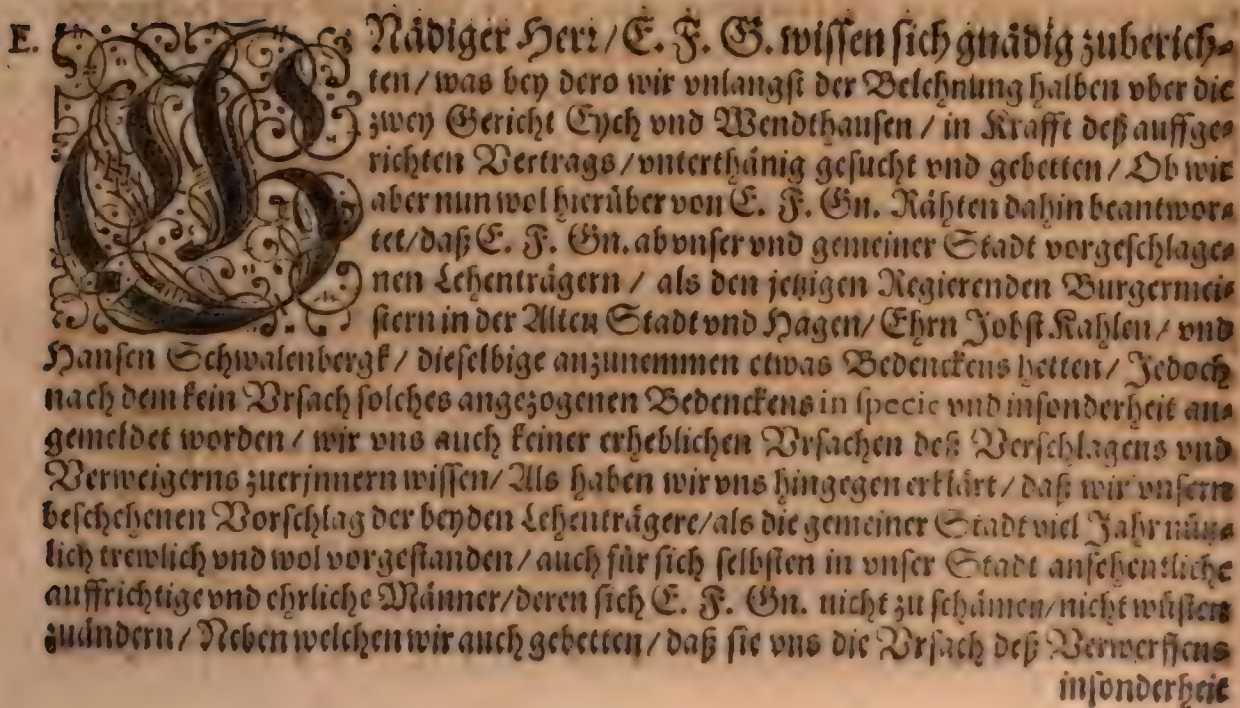 E. GNädiger Herr / E. F. G. wissen sich gnädig zuberich⸗
ten / was bey dero wir vnlangst der Belehnung halben vber die
zwey Gericht Eych vnd Wendthausen / in Krafft deß auffge⸗
richten Vertrags / vnterthänig gesucht vnd gebetten / Ob wir
aber nun wol hierüber von E. F. Gn. Rähten dahin beantwor⸗
tet / daß E. F. Gn. ab vnser vnd gemeiner Stadt vorgeschlage⸗
nen Lehenträgern / als den jetzigen Regierenden Burgermei⸗
stern in der Alten Stadt vnd Hagen / Ehrn Jobst Kahlen / vnd
Hansen Schwalenbergk / dieselbige anzunemmen etwas Bedenckens hetten / Jedoch
nach dem kein Vrsach solches angezogenen Bedenckens in specie vnd insonderheit an⸗
gemeldet worden / wir vns auch keiner erheblichen Vrsachen deß Verschlagens vnd
Verweigerns zuerjnnern wissen / Als haben wir vns hingegen erklärt / daß wir vnsern
beschehenen Vorschlag der beyden Lehenträgere / als die gemeiner Stadt viel Jahr nütz⸗
lich trewlich vnd wol vorgestanden / auch für sich selbsten in vnser Stadt ansehentliche
auffrichtige vnd ehrliche Männer / deren sich E. F. Gn. nicht zu schämen / nicht wüsten
zuändern / Neben welchen wir auch gebetten / daß sie vns die Vrsach deß Verwerffens
insonderheit